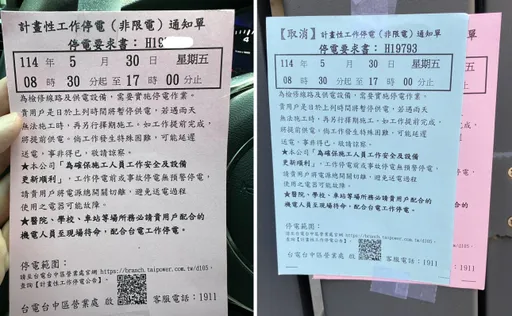 計畫性工作停電（非限電）通知單
停電要求書： H19
114 年 5 月 30 日 星期五
08 時 30 分起至 17 時 00 分止
為檢修線路及供電設備，需要實施停電作業。
貴用戶是日於上列時間將暫停供電，若遇雨天
無法施工時，再另行擇期施工。如工作提前完成，
將提前供電。倘工作發生特殊困難，可能延遲
送電，事非得已，敬請諒察。
★本公司「為確保施工人員工作安全及設備
更新順利」，工作停電前或事故停電無預警停電，
請貴用戶將電源總開關切離，避免送電過程
使用之電器可能故障。
★醫院、學校、車站等場所務必請貴用戶配合的
機電人員至現場待命，配合台電工作停電。
停電範圍：
請至台電台中區營業處官網 https://branch.taipower.com.tw/d105，
查詢【計畫性工作停電公告】。
台電台中區營業處 啟 客服電話：1911
【取消】計畫性工作停電（非限電）通知單
停電要求書： H19793
114 年 5 月 30 日 星期五
08 時 30 分起至 17 時 00 分止
為檢修線路及供電設備，需要實施停電作業。
貴用戶是日於上列時間將暫停供電，若遇雨天
無法施工時，再另行擇期施工。如工作提前完成，
將提前供電。倘工作發生特殊困難，可能延遲
送電，事非得已，敬請諒察。
★本公司「為確保施工人員工作安全及設備
更新順利」，工作停電前或事故停電無預警停電，
請貴用戶將電源總開關切離，避免送電過程
使用之電器可能故障。
★醫院、學校、車站等場所務必請貴用戶配合的
機電人員至現場待命，配合台電工作停電。
停電範圍：
請至台電台中區營業處官網 https://branch.taipower.com.tw/d105，
查詢【計畫性工作停電公告】。
台電台中區營業處 啟 客服電話：1911